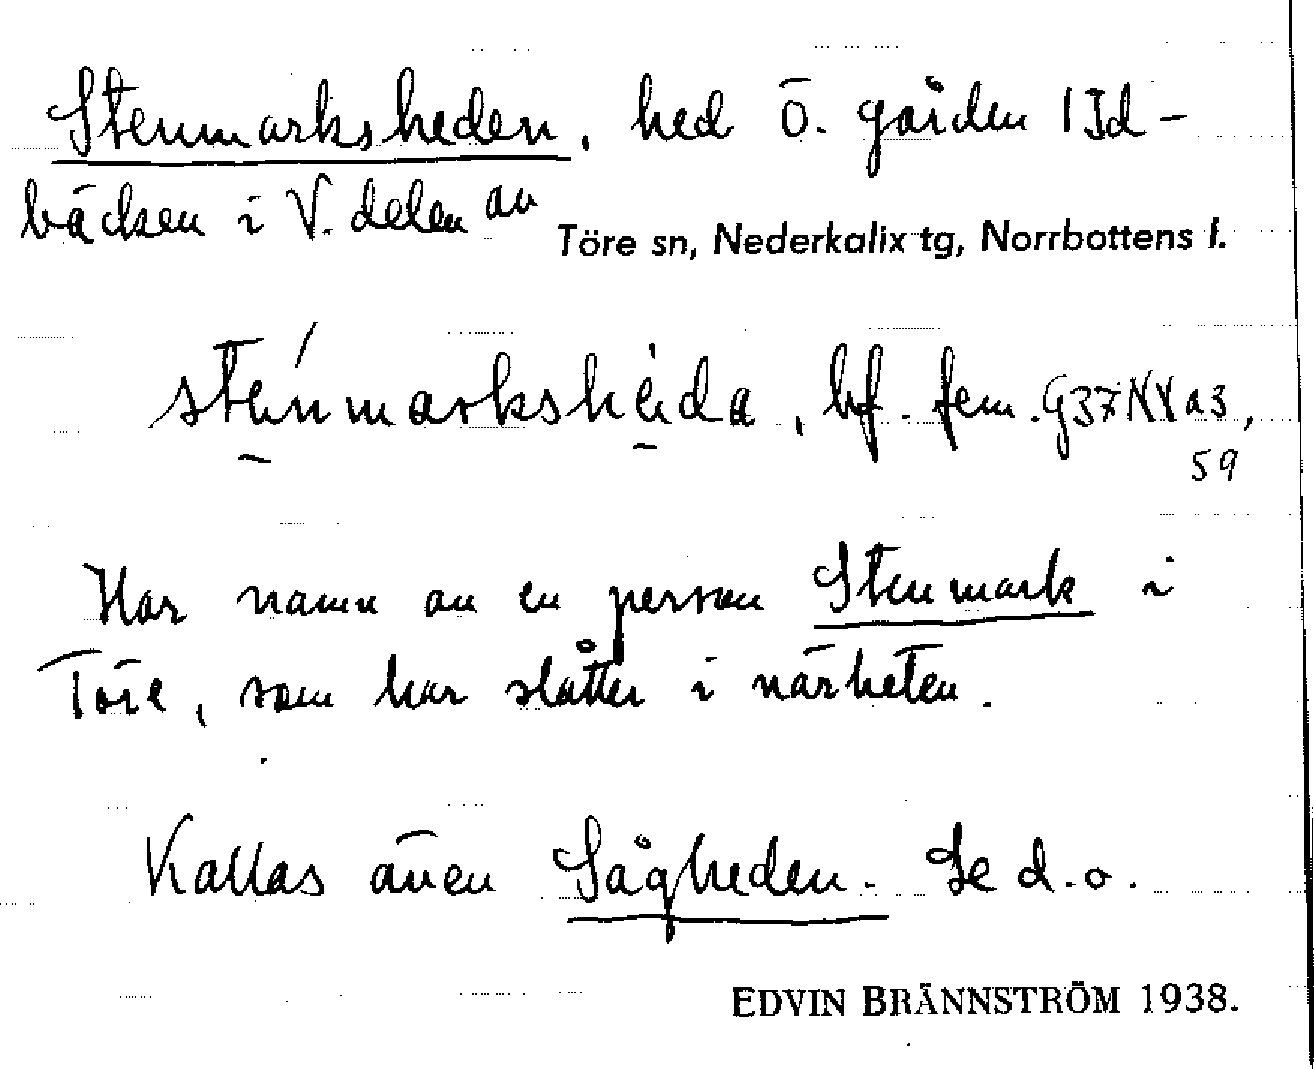 Stenmarksheden, hed ö. gården 1 Id-
bäcken i V. delen av
Töre sn, Nederkalix tg, Norrbottens l.
sténmarkshèi̯da, bf. fem. G37NYa3,
59
Har namn av en person Stenmark i
Töre, som har slåtter i närheten.
Kallas även Sågheden. Se d.o.
EDVIN BRÄNNSTRÖM 1938.